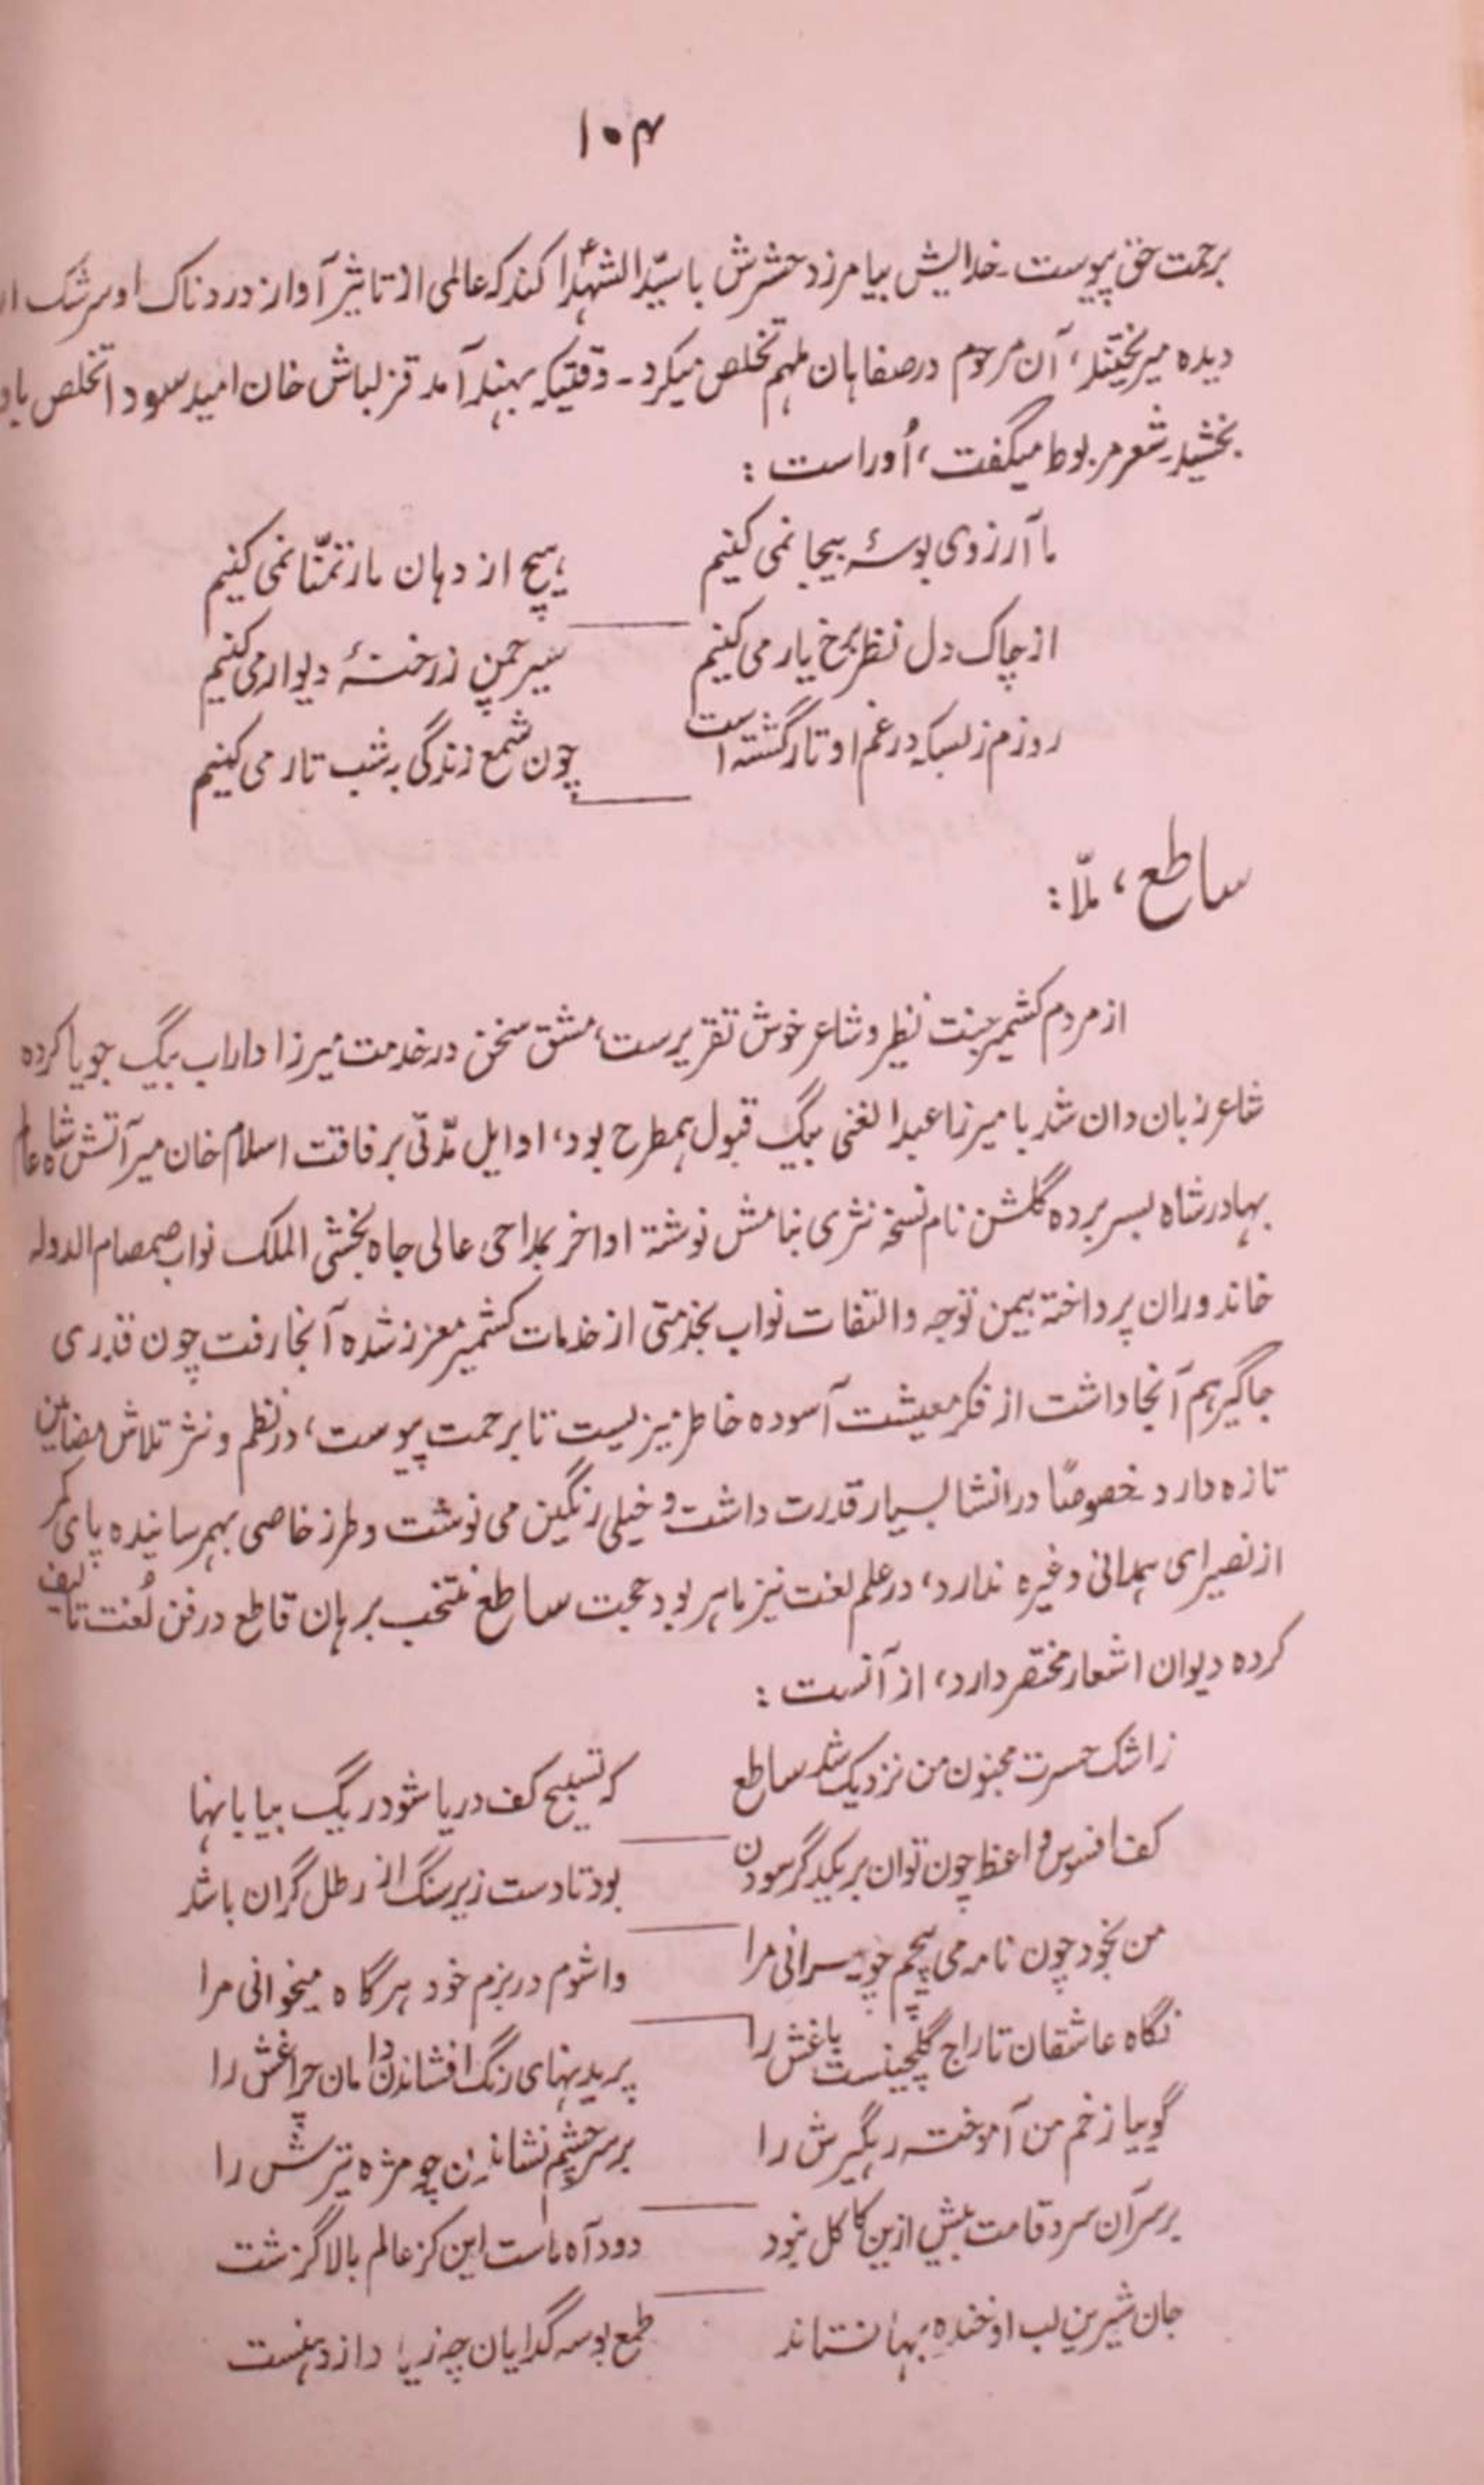 ۱۰۴
برحمت حق پیوست۔ خدایش بیامرزد حشرش با سیّد الشهداؑ کند که عالمی از تاثیر آواز دردناک او سرشک از
دیده میریختند، آن مرحوم در صفاهان ملهم تخلص میکرد۔ وقتیکه بهند آمد قزلباش خان امید سودا تخلص باو
بخشید۔ شعر مربوط میگفت، اُوراست :
ما آرزوی بوسهٔ بیجا نمی کنیم    هیچ از دهان مار تمنّا نمی کنیم
از چاک دل نظر برخ یار می کنیم    سیر چمن ز رخنهٔ دیوار می کنیم
روزم ز بسکه در غم او تار گشته است    چون شمع زندگی به شب تار می کنیم
ساطع، ملّا :
از مردم کشمیر جنت نظیر و شاعر خوش تقریرست، مشق سخن در خدمت میرزا داراب بیگ جویا کرده
شاعر زبان دان شد با میرزا عبدالغنی بیگ قبول همطرح بود، اوایل مدّتی برفاقت اسلام خان میر آتش شاه عالم
بهادر شاه بسر برده گلشن نام نسخه نثری بنامش نوشته اواخر بمداحی عالی جاه بخشی الملک نواب صمصام الدوله
خاندوران پرداخته بیمن توجه و التفات نواب بخدمتی از خدمات کشمیر معزز شده آنجا رفت چون قدری
جاگیر هم آنجا داشت از فکر معیشت آسوده خاطر میزیست تا برحمت پیوست، در نظم و نثر تلاش مضامین
تازه دارد خصوصاً در انشا بسیار قدرت داشت و خیلی رنگین می نوشت و طرز خاصی بهمرسانیده پای کمی
از نصیرای همدانی وغیره ندارد، در علم لغت نیز ماهر بود حجت ساطع منتخب برهان قاطع در فن لُغت تالیف
کرده دیوان اشعار مختصر دارد، از آنست :
ز اشک حسرت مجنون من نزدیک شد ساطع    که تسبیح کف دریا شود ریگ بیابانها
کف افسوس واعظ چون توان بر یکدگر سودن    بود تا دست زیر سنگ از رطل گران باشد
من بخود چون نامه می پیچم چو میرانی مرا    واشوم در بزم خود هر گاه میخوانی مرا
نگاه عاشقان تاراج گلچینست باغش را    پریدنهای رنگ افشاندن دامان چراغش را
گوییا زخم من آموخته رهگیرش را    بر سر چشم نشاندن چو مژه تیرش را
بر سر آن سرو قامت بیش ازین کاکل نبود    دود آه ماست این کز عالم بالا گزشت
جان شیرین لب او خنده بها نستاند    طمع بوسه گدایان چه زیاد از دهنست